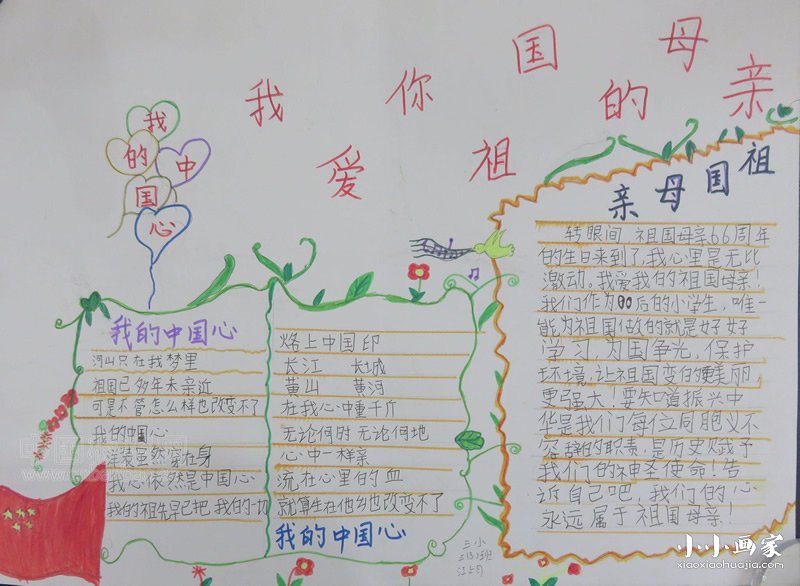 我爱你祖国的母亲
我的中国心
我的中国心
河山只在我梦里
祖国已多年未亲近
可是不管怎么样也改变不了
我的中国心
洋装虽然穿在身
我心依然是中国心
我的祖先早已把我的一切
烙上中国印
长江 长城
黄山 黄河
在我心中重千斤
无论何时 无论何地
心中一样亲
流在心里的血
就算生在他乡也改变不了
我的中国心
三小
亲母国祖
转眼间，祖国母亲66周年
的生日来到了，我心里是无比
激动，我爱我的祖国母亲！
我们作为00后的小学生，唯一
能为祖国做的就是好好
学习，为国争光，保护
环境，让祖国变的更美丽，
更强大！要知道振兴中
华是我们每位同胞义不
容辞的职责，是历史赋予
我们的神圣使命！告
近自己吧，我们的心
永远属于祖国母亲！
小小画家
xiaoxiaohuajia.com